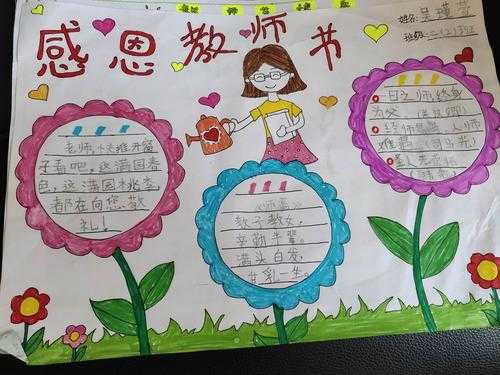 感恩教师节
姓名:吴瑾萱
班级:二(2)班
老师,快推开窗
子看吧,这满园春
色,这满园桃李,
都在向您敬
礼!
《师恩》
教子教女,
辛勤半辈。
满头白发,
一日为师,终身
为父
经师易遇,人师
难遇